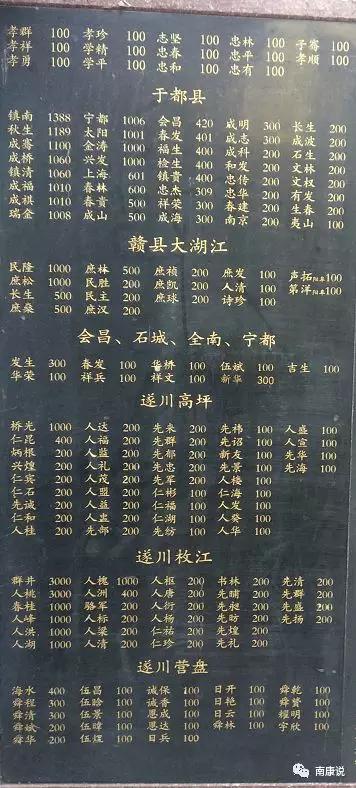 孝群 100 孝珍 100 志坚 100 忠林 100 子骞 100
孝祥 100 学精 100 忠春 100 忠平 100 孝顺 100
孝勇 100 学平 100 忠和 100 忠有 100
于都县
镇南 1388 宁都 1006 会昌 420 成明 300 长生 200
秋生 1189 太阳 1001 春发 401 成志 300 成波 200
成骞 1100 金涛 1000 福生 400 成科 200 石生 200
成桥 1060 兴发 1000 检生 400 和发 200 文林 200
镇清 1060 上海 601 镇贵 400 忠传 200 文权 200
成福 1010 春林 600 忠杰 309 忠华 200 有发 200
成祺 1010 春贵 500 祥荣 300 春建 200 生春 200
瑞金 1008 成山 500 成海 300 南京 200 夷山 100
赣县大湖江
民隆 1000 庶林 500 庶桢 200 庶发 100 声拓 100
庶松 1000 民胜 200 庶凯 200 人清 100 第洋 100
长生 500 民主 200 庶球 200 诗珍 100
庶燊 500 庶汉 200
会昌、石城、全南、宁都
发生 300 春发 100 华桥 100 伍斌 100 吉生 100
华荣 100 祥兵 100 祥文 100 新华 300
遂川高坪
桥光 1000 人达 200 先来 200 先祎 100 人盛 100
仁昆 400 人福 200 先群 200 先诏 100 人宣 100
炳根 200 人监 200 先郁 200 新友 100 先华 100
兴煌 200 人礼 200 先忠 200 先景 100 先海 100
仁宾 200 人茂 200 先军 200 人楼 100
仁石 200 人盟 200 仁彬 100 仁海 100
先诚 200 人益 200 仁福 100 人发 100
仁和 200 人盅 200 仁湖 100 人葵 100
人桂 200 先部 200 先纺 100 人华 100
遂川枚江
群井 3000 人槐 1000 人枢 200 书林 200 先清 200
人桃 3000 人洲 400 人唐 200 先晡 200 先群 200
春桂 1000 骆军 200 人衍 200 先昶 200 先盛 200
人峰 1000 人标 200 人杨 200 先昉 200 先扬 200
人洪 1000 人梁 200 仁祜 200 先煌 200
人湖 1000 人清 200 仁珍 200 先礼 200
遂川营盘
海水 400 伍昌 100 诚保 100 日开 100 舜乾 100
舜程 300 伍晗 100 诚香 100 日艳 100 舜贤 100
舜清 300 伍景 100 恩成 100 日云 100 耀明 100
舜斌 200 伍暐 100 恩达 100 舜林 100 宇欣 100
舜华 200 伍煜 100 日兵 100
南康说